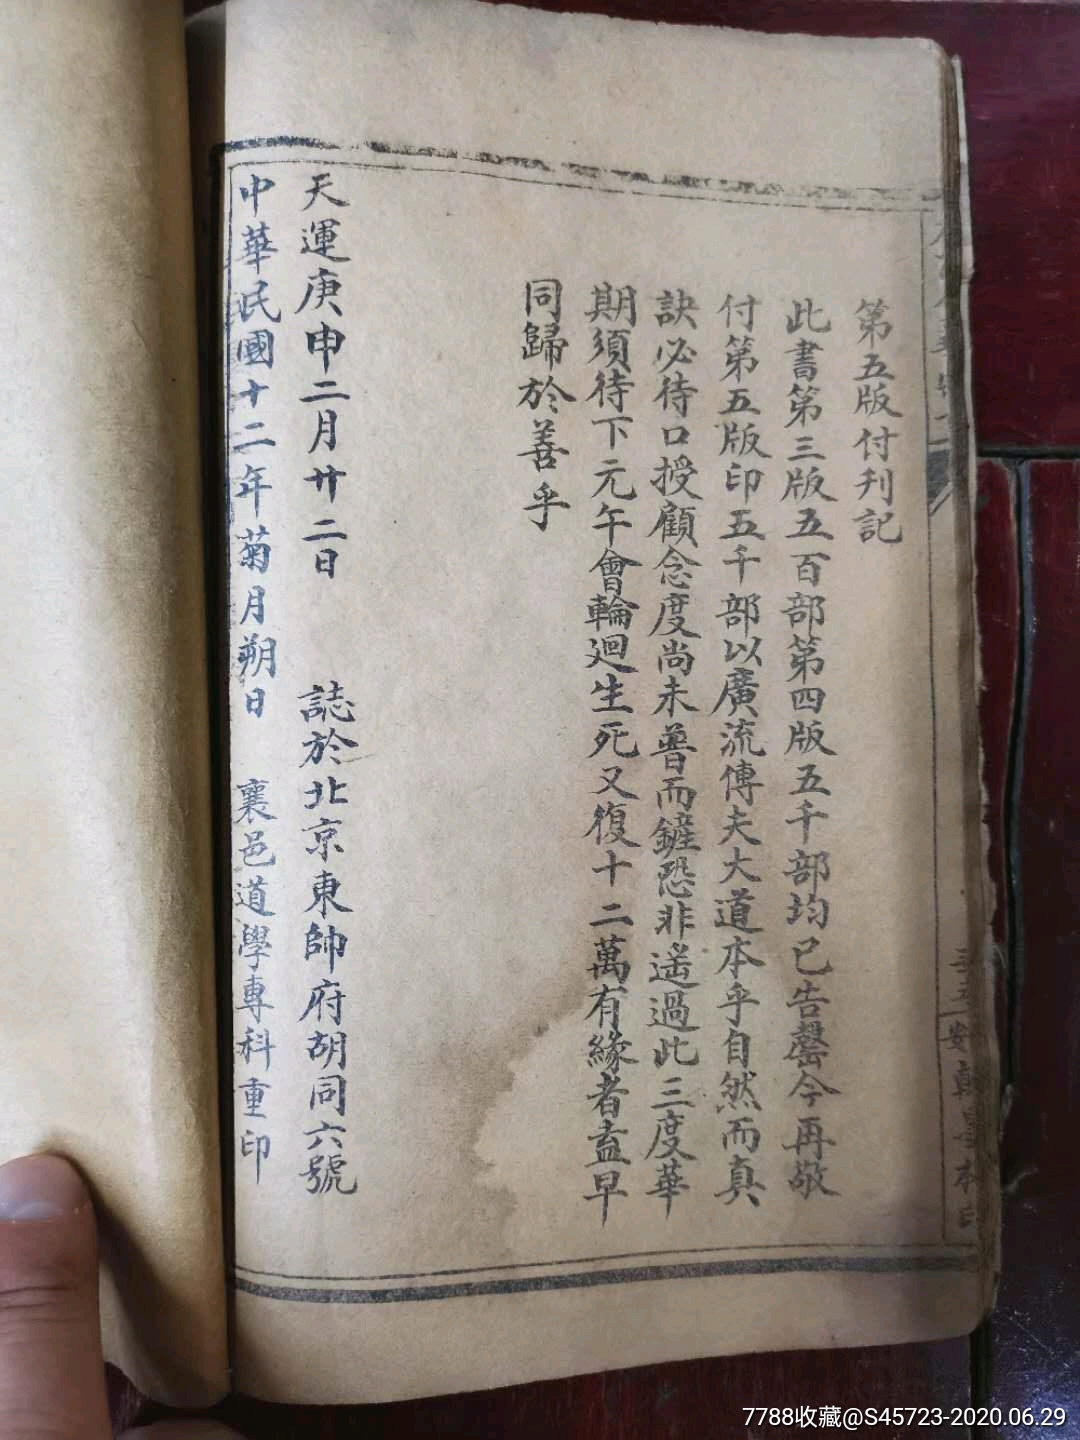 第五版付刊記
此書第三版五百部第四版五千部均已告罄今再敬
付第五版印五千部以廣流傳夫大道本乎自然而真
訣必待口授顧念度尚未普而鏟恐非遥過此三度華
期須待下元午會輪迴生死又復十二萬有緣者盍早
同歸於善乎
天運庚申二月廿二日 誌於北京東帥府胡同六號
中華民國十二年菊月朔日 襄邑道學專科重印
7788收藏@S45723-2020.06.29